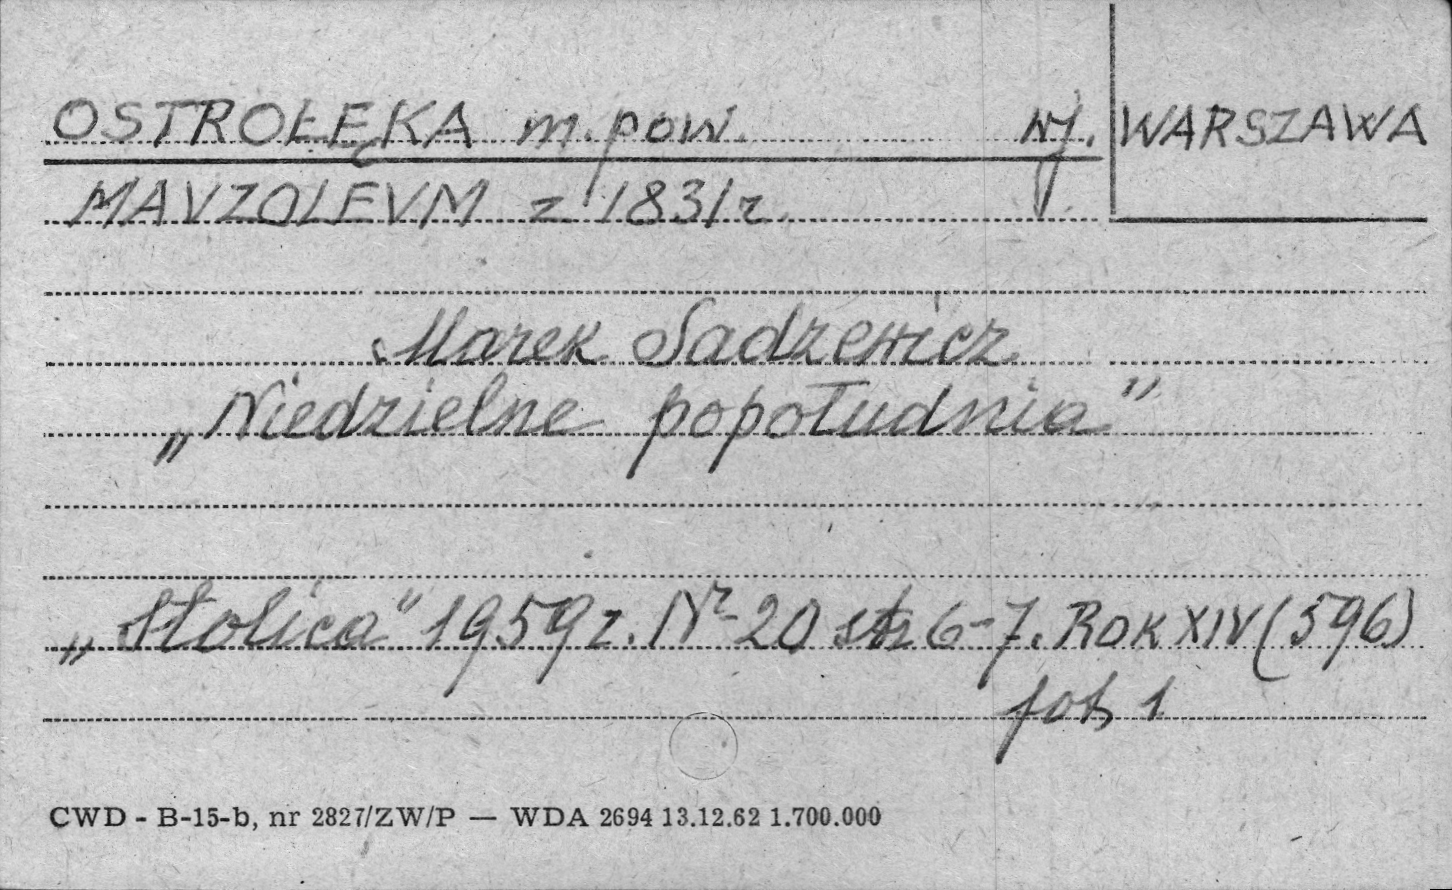 OSTROŁĘKA m. pow. wj. WARSZAWA
MAVZOLEVM z 1831 r.
Marek Sadzewicz
„Niedzielne popołudnia”
„Stolica” 1959 r. Nr 20 str 6-7. ROK XIV (596)
fot. 1
CWD - B-15-b, nr 2827/ZW/P — WDA 2694 13.12.62 1.700.000